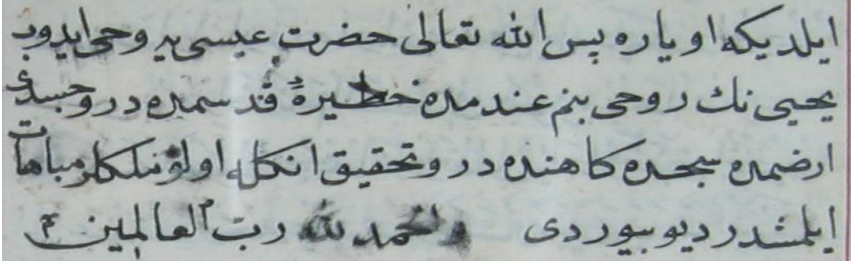 ايلديكه اوياره پس الله تعالى حضرت عيسى يه وحى ايدوب
يحيى نك روحى بنم عندمده خطيرۀ قدسمده در و جسدى
ارضمده سجده كاهنده در و تحقيق انكله اولو ملكلر مباهات
ايلمشدر ديو بيوردى والحمد لله رب العالمين م